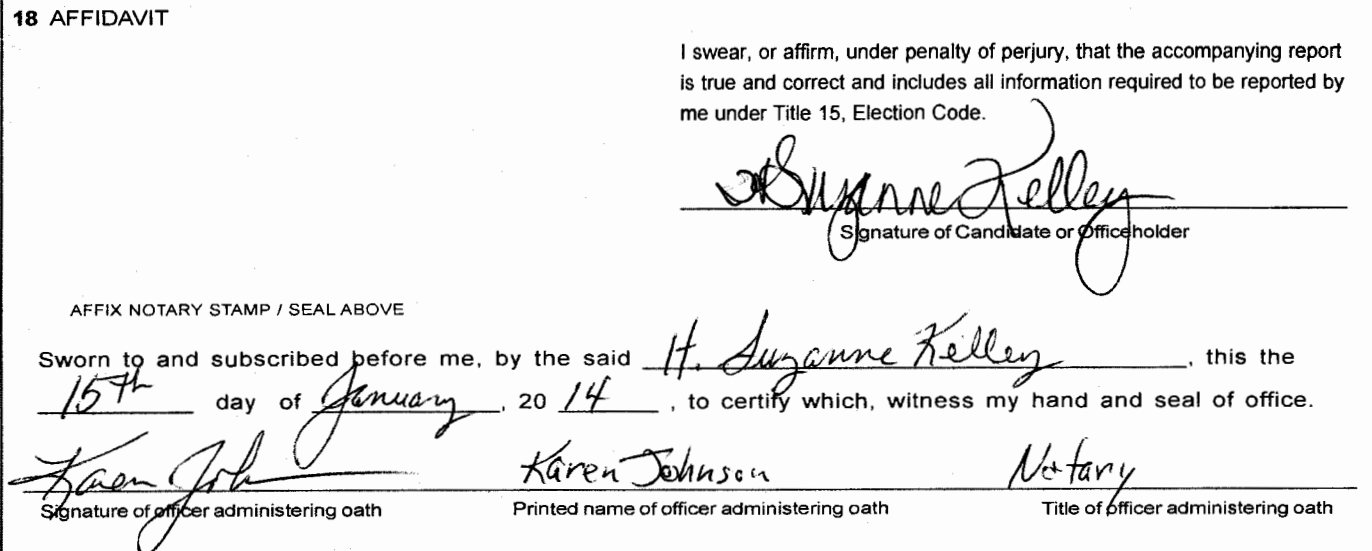 18 AFFIDAVIT
I swear, or affirm, under penalty of perjury, that the accompanying report
is true and correct and includes all information required to be reported by
me under Title 15, Election Code.
H Suzanne Kelley
Signature of Candidate or Officeholder
AFFIX NOTARY STAMP / SEAL ABOVE
Sworn to and subscribed before me, by the said H. Suzanne Kelley, this the
15th day of January, 20 14, to certify which, witness my hand and seal of office.
Karen Joh Karen Johnson Notary
Signature of officer administering oath Printed name of officer administering oath Title of officer administering oath